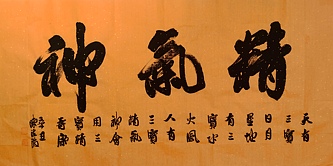 精氣神
天有
三寶
日月
星地
有三
寶水
火風
人有
三寶
精氣
神會
用三
寶
壽康
辛丑